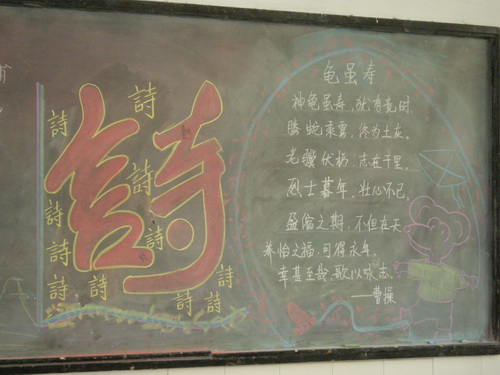 詩
詩
詩
詩
詩
詩
詩
詩
詩
詩
詩
詩
龟虽寿
神龟虽寿,犹有竟时,
腾蛇乘雾,终为土灰。
老骥伏枥,志在千里,
烈士暮年,壮心不已。
盈缩之期,不但在天
养怡之福,可得永年。
幸甚至哉,歌以咏志。
——曹操